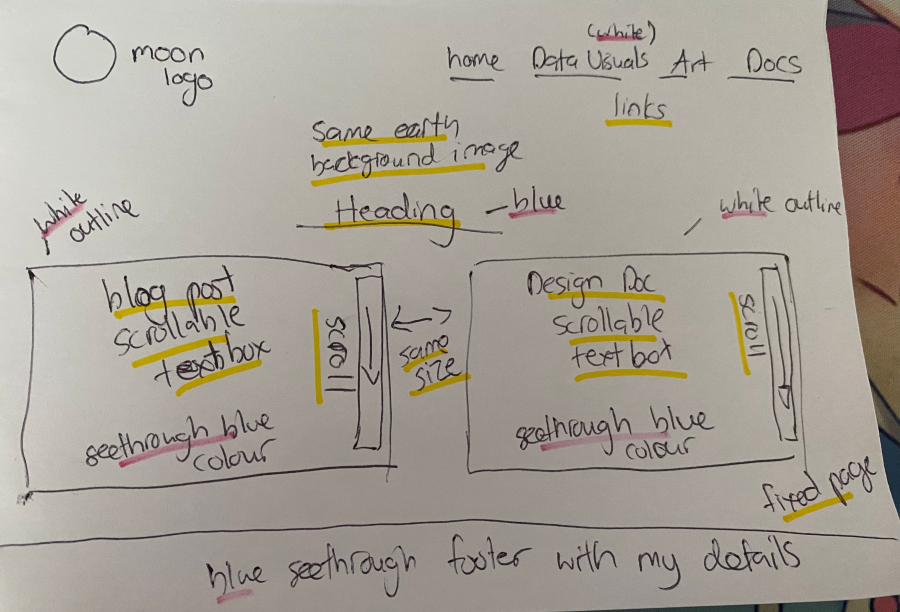 moon
logo
(white)
home Data Visuals Art Docs
links
same earth
background image
Heading - blue
white
outline
white outline
blog post
scrollable
text box
scroll
seethrough blue
colour
same
size
Design Doc
scrollable
text box
scroll
seethrough blue
colour
fixed page
blue seethrough footer with my details